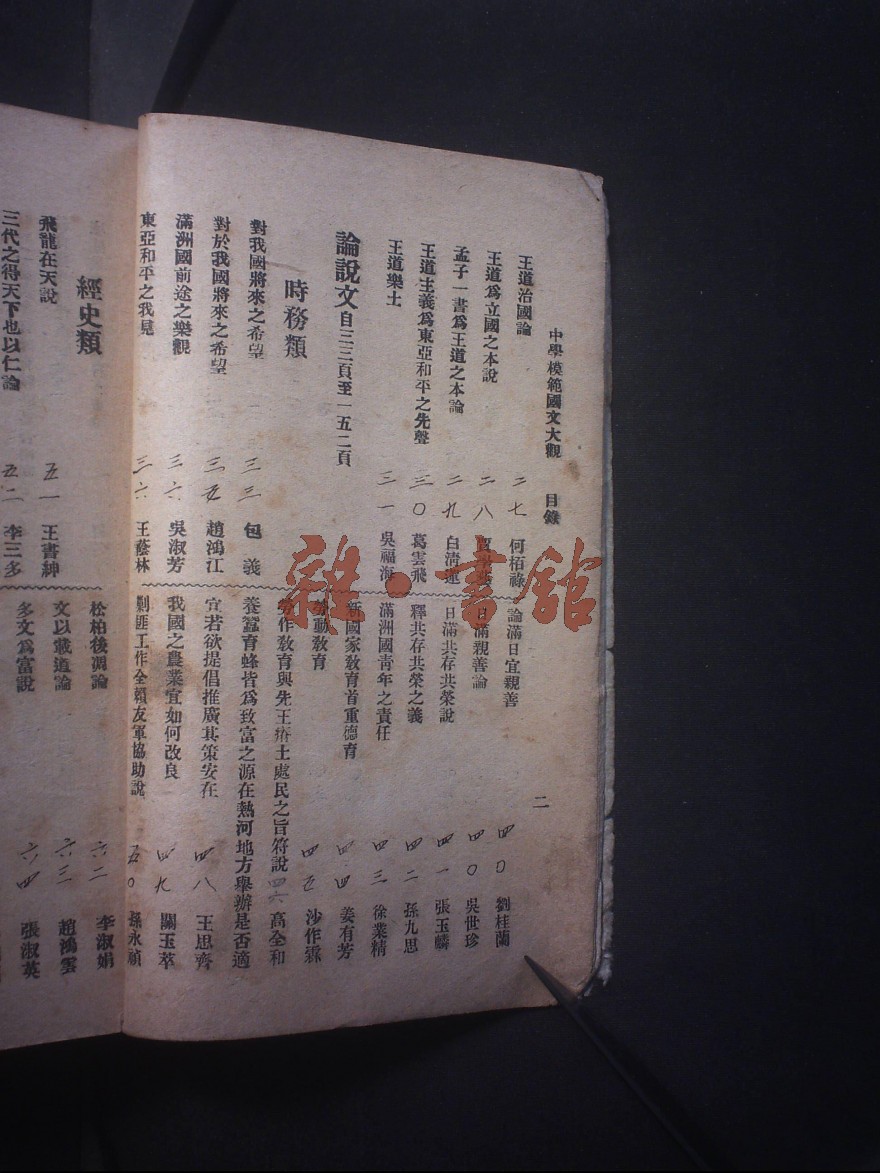 中學模範國文大觀 目錄
二
王道治國論 二七 何栢祿
王道爲立國之本說 二八
孟子一書爲王道之本論 二九 白清蓮
王道主義爲東亞和平之先聲 三〇 葛雲飛
王道樂土 三一 吳福海
論說文 自三三頁至一五二頁
時務類
對我國將來之希望 三三 包義
對於我國將來之希望 三五 趙鴻江
滿洲國前途之樂觀 三六 吳淑芳
東亞和平之我見 三六 王蔭林
論滿日宜親善 四〇 劉桂蘭
日滿親善論 四〇 吳世珍
日滿共存共榮說 四一 張玉麟
釋共存共榮之義 四二 孫九思
滿洲國靑年之責任 四三 徐業精
新國家敎育首重德育 四四 姜有芳
勞動敎育 四五 沙作霖
勞作敎育與先王瘠土處民之旨符說 四六 高全和
養蠶育蜂皆爲致富之源在熱河地方舉辦是否適
宜若欲提倡推廣其策安在 四八 王思齊
我國之農業宜如何改良 四九 關玉萃
剿匪工作全賴友軍協助說 五〇 孫永禎
經史類
飛龍在天說 五一 王書紳
三代之得天下也以仁論 五二 李三多
松柏後凋論 六二 李淑娟
文以載道論 六三 趙鴻雲
多文爲富說 六四 張淑英
雜·書館